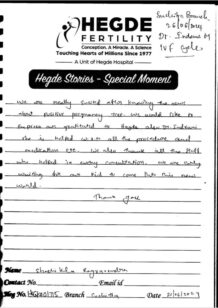 Suchitra Branch,
Dr. Indrani M
IVF cycle.
HEGDE
FERTILITY
Conception. A Miracle. A Science
Touching Hearts of Millions Since 1977
A Unit of Hegde Hospital
Hegde Stories - Special Moment
We are really excited after knowing the news
about positive pregnancy test we would like to
express our gratitude to Hegde also Dr. Indrani
she is helped with all the procedure and
medication etc. We also thank all the staff
who helped in every consultation. we are
waiting for our kid to come into this new
world.
Thank you
Name
Contact No. Email id
Reg No. Branch Suchitra Date